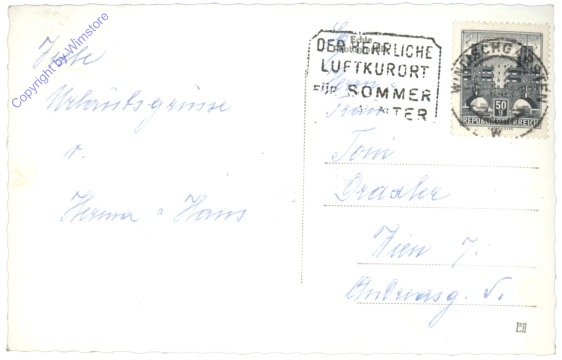 Copyright by Wimstore
Liebe
Urlaubsgrüsse
v.
Herma u. Hans
Echte
DER HERRLICHE
LUFTKURORT
FÜR SOMMER
WINTER
WINDISCHGARSTEN
50
g
REPUBLIK ÖSTERREICH
Toni
Draxler
Wien 7.
Andreasg. 5.